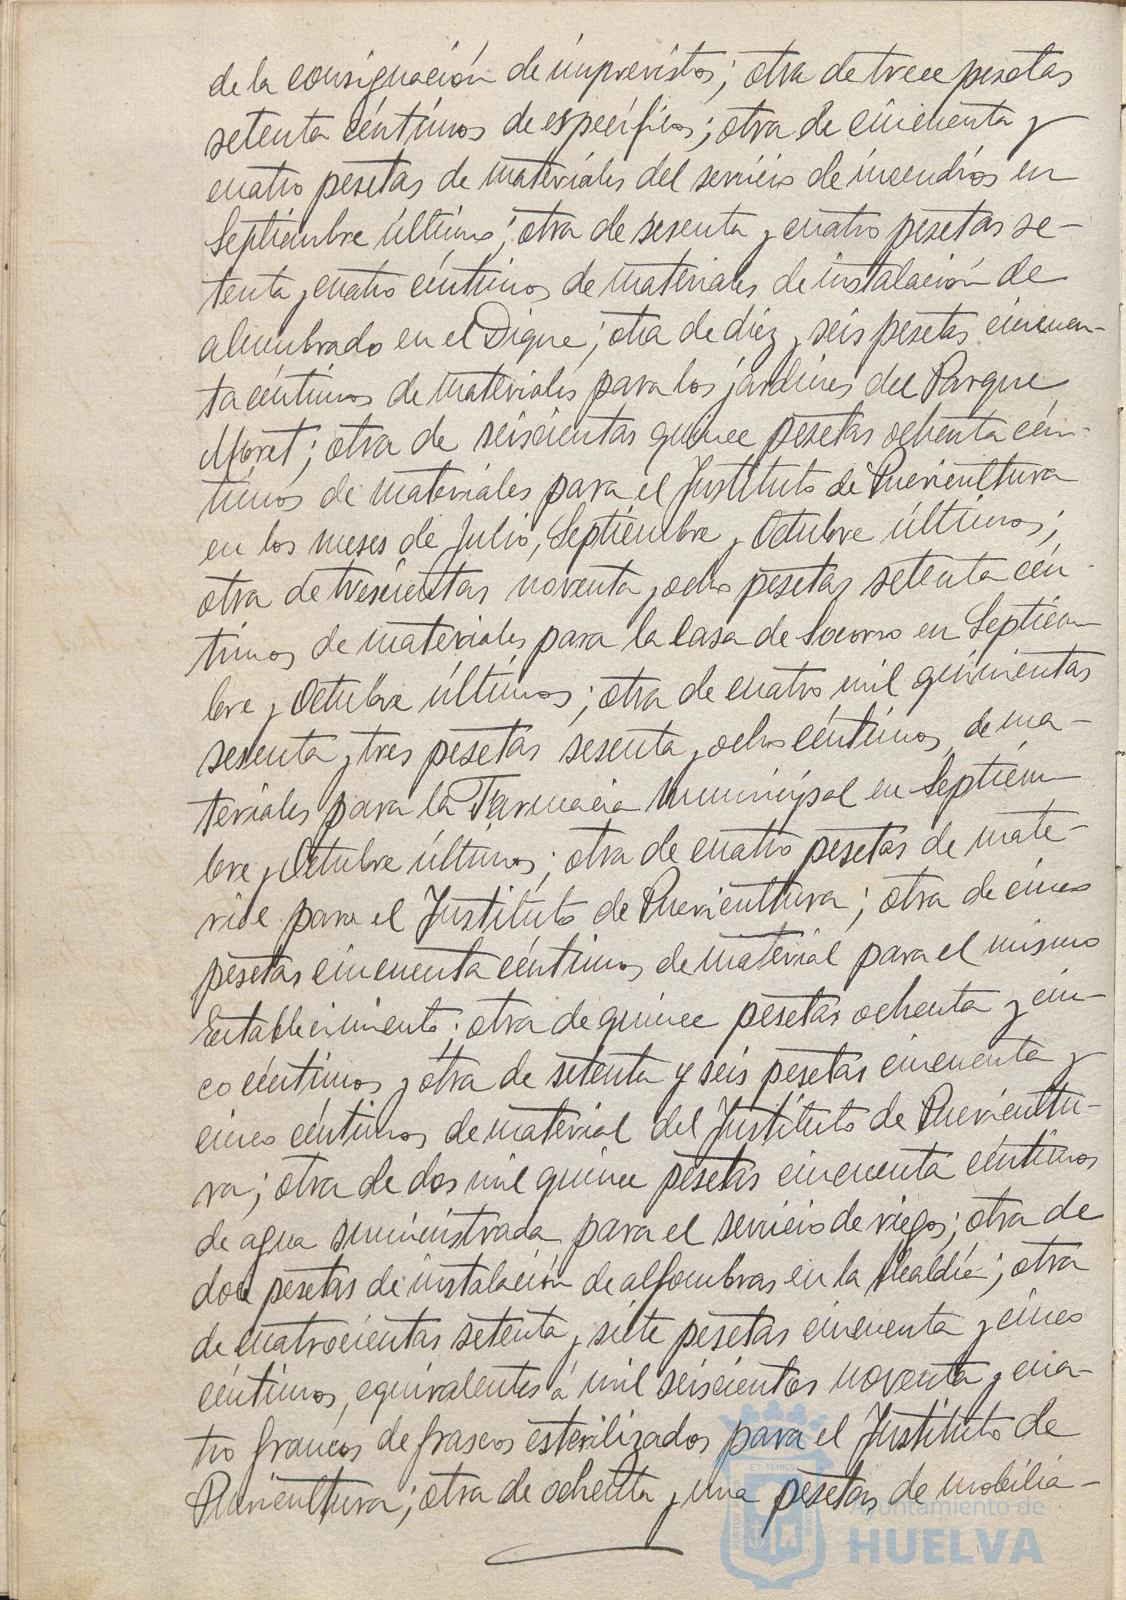 de la consignación de imprevistos; otra de trece pesetas
setenta céntimos de específicos; otra de cincuenta y
cuatro pesetas de materiales del servicio de incendios en
Septiembre último; otra de sesenta y cuatro pesetas se-
tenta y cuatro céntimos de materiales de instalación de
alumbrado en el Dique; otra de diez y seis pesetas cincuen-
ta céntimos de materiales para los jardines del Parque
Moret; otra de seiscientas quince pesetas ochenta cén-
timos de materiales para el Justituto de Puericultura
en los meses de Julio, Septiembre y Octubre últimos;
otra de trescientas noventa y ocho pesetas setenta cén-
timos de materiales para la Casa de Socorro en Septiem-
bre y Octubre últimos; otra de cuatro mil quinientas
sesenta y tres pesetas sesenta y ocho céntimos de ma-
teriales para la Farmacia Municipal en Septiem-
bre y Octubre últimos; otra de cuatro pesetas de mate-
rial para el Justituto de Puericultura; otra de cinco
pesetas cincuenta céntimos de material para el mismo
Establecimiento; otra de quince pesetas ochenta y cin-
co céntimos y otra de setenta y seis pesetas cincuenta y
cinco céntimos de material del Justituto de Puericultu-
ra; otra de dos mil quince pesetas cincuenta céntimos
de agua suministrada para el servicio de riegos; otra de
doce pesetas de instalación de alfombras en la Alcaldía; otra
de cuatrocientas setenta y siete pesetas cincuenta y cinco
céntimos, equivalentes á mil seiscientos noventa y cua-
tro francos de frascos esterilizados para el Justituto de
Puericultura; otra de ochenta y una pesetas de mobilia-
Ayuntamiento de
HUELVA